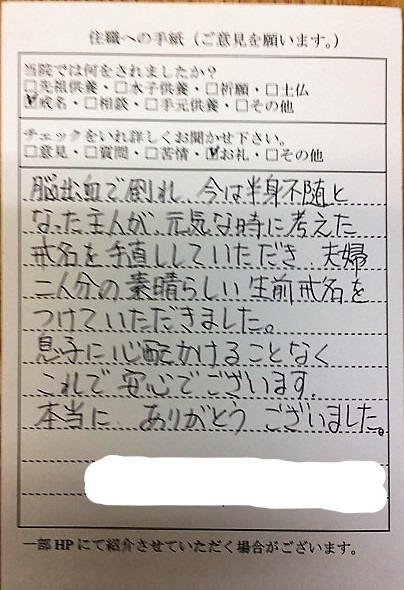 住職への手紙（ご意見を願います。）
当院では何をされましたか？
□先祖供養・□水子供養・□祈願・□土仏
☑戒名・□相談・□手元供養・□その他
チェックをいれ詳しくお聞かせ下さい。
□意見・□質問・□苦情・☑お礼・□その他
脳出血で倒れ、今は半身不随と
なった主人が、元気な時に考えた
戒名を手直ししていただき、夫婦
二人分の素晴らしい生前戒名を
つけていただきました。
息子に心配かけることなく
これで安心でございます。
本当に、ありがとうございました。
一部HPにて紹介させていただく場合がございます。